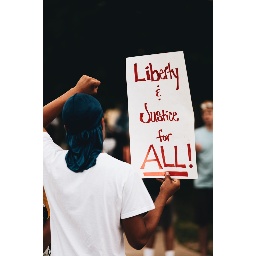 Liberty
&
Justice
for
ALL!